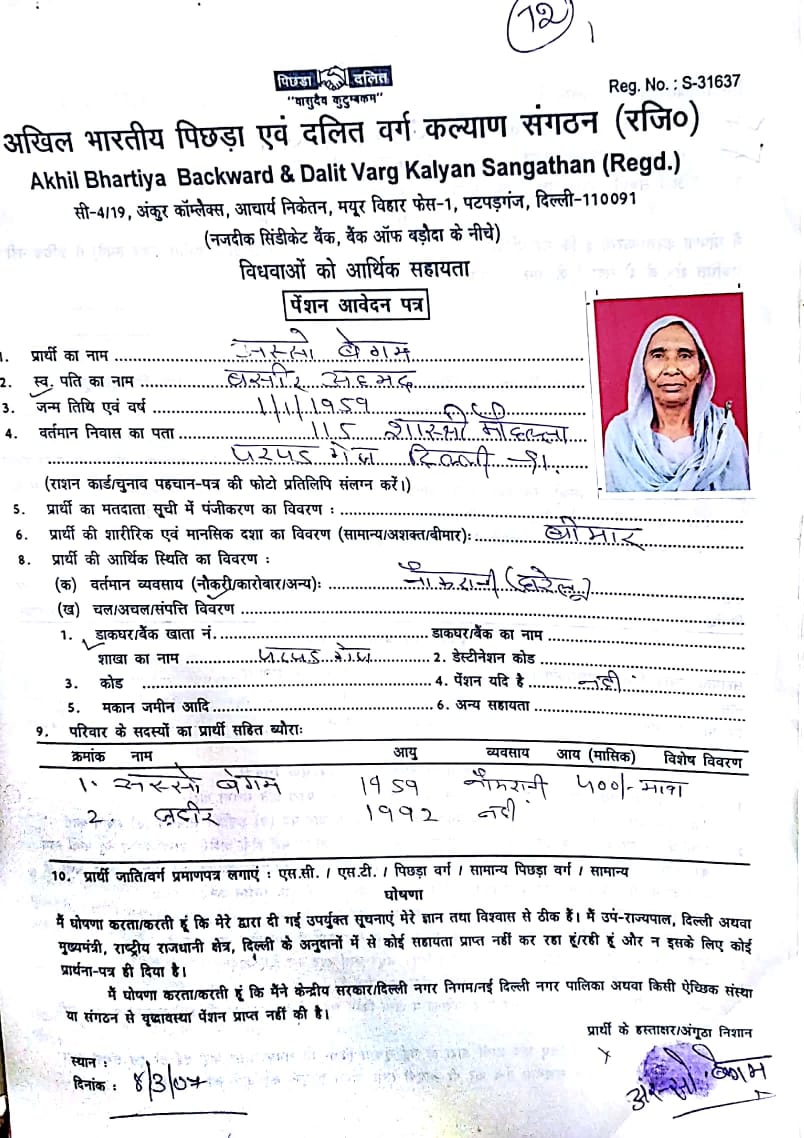 72
पिछड़ा दलित
"वासुदेव कुटुम्बकम"
Reg. No. : S-31637
अखिल भारतीय पिछड़ा एवं दलित वर्ग कल्याण संगठन (रजि०)
Akhil Bhartiya Backward & Dalit Varg Kalyan Sangathan (Regd.)
सी-4/19, अंकुर कॉम्लैक्स, आचार्य निकेतन, मयूर विहार फेस-1, पटपड़गंज, दिल्ली-110091
(नजदीक सिंडीकेट बैंक, बैंक ऑफ बड़ौदा के नीचे)
विधवाओं को आर्थिक सहायता
पेंशन आवेदन पत्र
1. प्रार्थी का नाम बेगम
2. स्व. पति का नाम बसीर अहमद
3. जन्म तिथि एवं वर्ष 1/1/1959
4. वर्तमान निवास का पता 115 शास्त्री मौहल्ला
(राशन कार्ड/चुनाव पहचान-पत्र की फोटो प्रतिलिपि संलग्न करें।)
5. प्रार्थी का मतदाता सूची में पंजीकरण का विवरण :
6. प्रार्थी की शारीरिक एवं मानसिक दशा का विवरण (सामान्य/अशक्त/बीमार): बीमार
8. प्रार्थी की आर्थिक स्थिति का विवरण :
(क) वर्तमान व्यवसाय (नौकरी/कारोबार/अन्य): नौकरानी (घरेलू)
(ख) चल/अचल/संपत्ति विवरण
1. डाकघर/बैंक खाता नं. डाकघर/बैंक का नाम
शाखा का नाम 2. डेस्टीनेशन कोड
3. कोड 4. पेंशन यदि है नहीं
5. मकान जमीन आदि 6. अन्य सहायता
9. परिवार के सदस्यों का प्रार्थी सहित ब्यौरा:
क्रमांक नाम आयु व्यवसाय आय (मासिक) विशेष विवरण
1. बेगम 1959 नौकरानी 500/- मात्र
2. 1992 नहीं
10. प्रार्थी जाति/वर्ग प्रमाणपत्र लगाएं : एस.सी. / एस.टी. / पिछड़ा वर्ग / सामान्य पिछड़ा वर्ग / सामान्य
घोषणा
मैं घोषणा करता/करती हूं कि मेरे द्वारा दी गई उपर्युक्त सूचनाएं मेरे ज्ञान तथा विश्वास से ठीक हैं। मैं उपं-राज्यपाल, दिल्ली अथवा
मुख्यमंत्री, राष्ट्रीय राजधानी क्षेत्र, दिल्ली के अनुदानों में से कोई सहायता प्राप्त नहीं कर रहा हूं/रही हूं और न इसके लिए कोई
प्रार्थना-पत्र ही दिया है।
मैं घोषणा करता/करती हूं कि मैंने केन्द्रीय सरकार/दिल्ली नगर निगम/नई दिल्ली नगर पालिका अथवा किसी ऐच्छिक संस्था
या संगठन से वृद्धावस्था पेंशन प्राप्त नहीं की है।
प्रार्थी के हस्ताक्षर/अंगूठा निशान
स्थान :
दिनांक : 8/3/07
बेगम